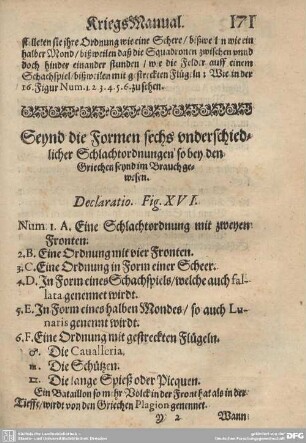 KriegsManual. 171
stelleten sie ihre Ordnung wie eine Schere / bißwe l n wie ein
halber Mond / bißweilen daß die Squadronen zwischen vnnd
doch hinder einander stunden / wie die Felder auff einem
Schachspiel / bißweilen mit gestreckten Flügeln: Wie in der
16. Figur Num. 1 2 3. 4. 5. 6. zusehen.
Seynd die Formen sechs vnderschied-
licher Schlachtordnungen so bey den
Griechen seynd im Brauch ge-
wesen.
Declaratio. Fig. XVI.
Num. 1. A. Eine Schlachtordnung mit zweyen
Fronten.
2. B. Eine Ordnung mit vier Fronten.
3. C. Eine Ordnung in Form einer Scheer.
4. D. In Form eines Schachspiels / welche auch fal-
lata genennet wirdt.
5. E. In Form eines halben Mondes / so auch Lu-
naris genennt wirdt.
6. F. Eine Ordnung mit gestreckten Flügeln.
Die Caualleria.
m. Die Schützen.
Die lange Spieß oder Picquen.
Ein Bataillon so mehr Volck in der Front hat als in der
Tieffe / wirdt von den Griechen Plagion genennet.
Y 2 Wann